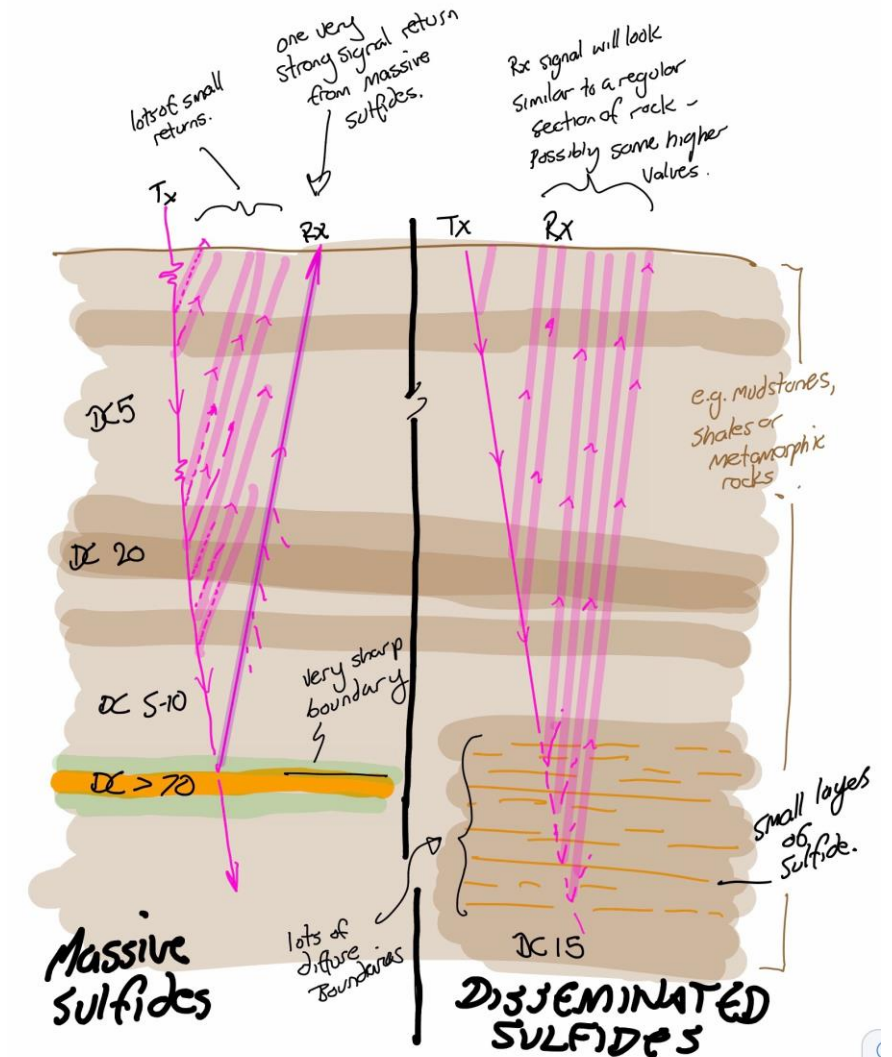 lots of small
returns.
one very
strong signal return
from Massive
sulfides.
Rx signal will look
similar to a regular
section of rock –
Possibly some higher
values.
Tx
Rx
Tx
Rx
DC5
DC 20
DC 5-10
very sharp
boundary
DC > 70
e.g. mudstones,
shales or
metamorphic
rocks
small layes
of
sulfide.
lots of
diffuse
Boundaries
DC 15
Massive
Sulfides
DISSEMINATED
SULFIDES